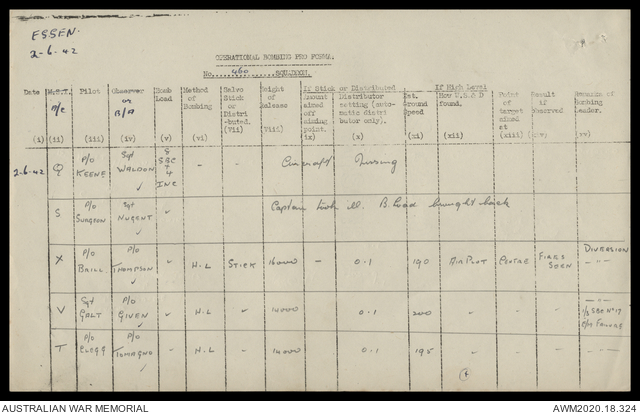 ESSEN.
2-6-42
OPERATIONAL BOMBING PRO FORMA.
No. 460 SQUADRON.
Date A/CT. Pilot Observer or B/A Bomb Load Method of Bombing Salvo Stick or Distri- buted. Height of Release If Stick or Distributed Amount aimed off aiming point. Distributor setting (auto- matic distri butor only). Est. Ground Speed If High Level How W.S. & D found. Point of target aimed at Result if Observed Remarks of Bombing Leader.
(i) (ii) (iii) (iv) (v) (vi) (vii) (viii) (ix) (x) (xi) (xii) (xiii) (xiv) (xv)
2-6-42 Q P/O KEENE Sgt WALDON ✓ 8 SBC 4 INC - Aircraft Missing
S P/O SURGEON Sgt NUGENT ✓ ✓ Captain took ill. B. Load brought back
X P/O BRILL P/O THOMPSON ✓ ✓ H.L STICK 16000 — 0.1 190 AIR PLOT CENTRE FIRES SEEN DIVERSION - " -
V Sgt GALT P/O GIVEN ✓ ✓ H.L ✓ 14000 0.1 200 - " - FAILURE
T P/O CLEGG P/O ✓ ✓ H.L ✓ 14000 0.1 195 ✓
AUSTRALIAN WAR MEMORIAL
AWM2020.18.324